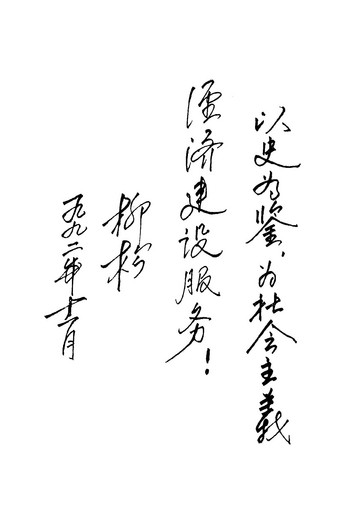 以史为鉴，为社会主義
经济建设服务！
柳杉
一九九二年十一月